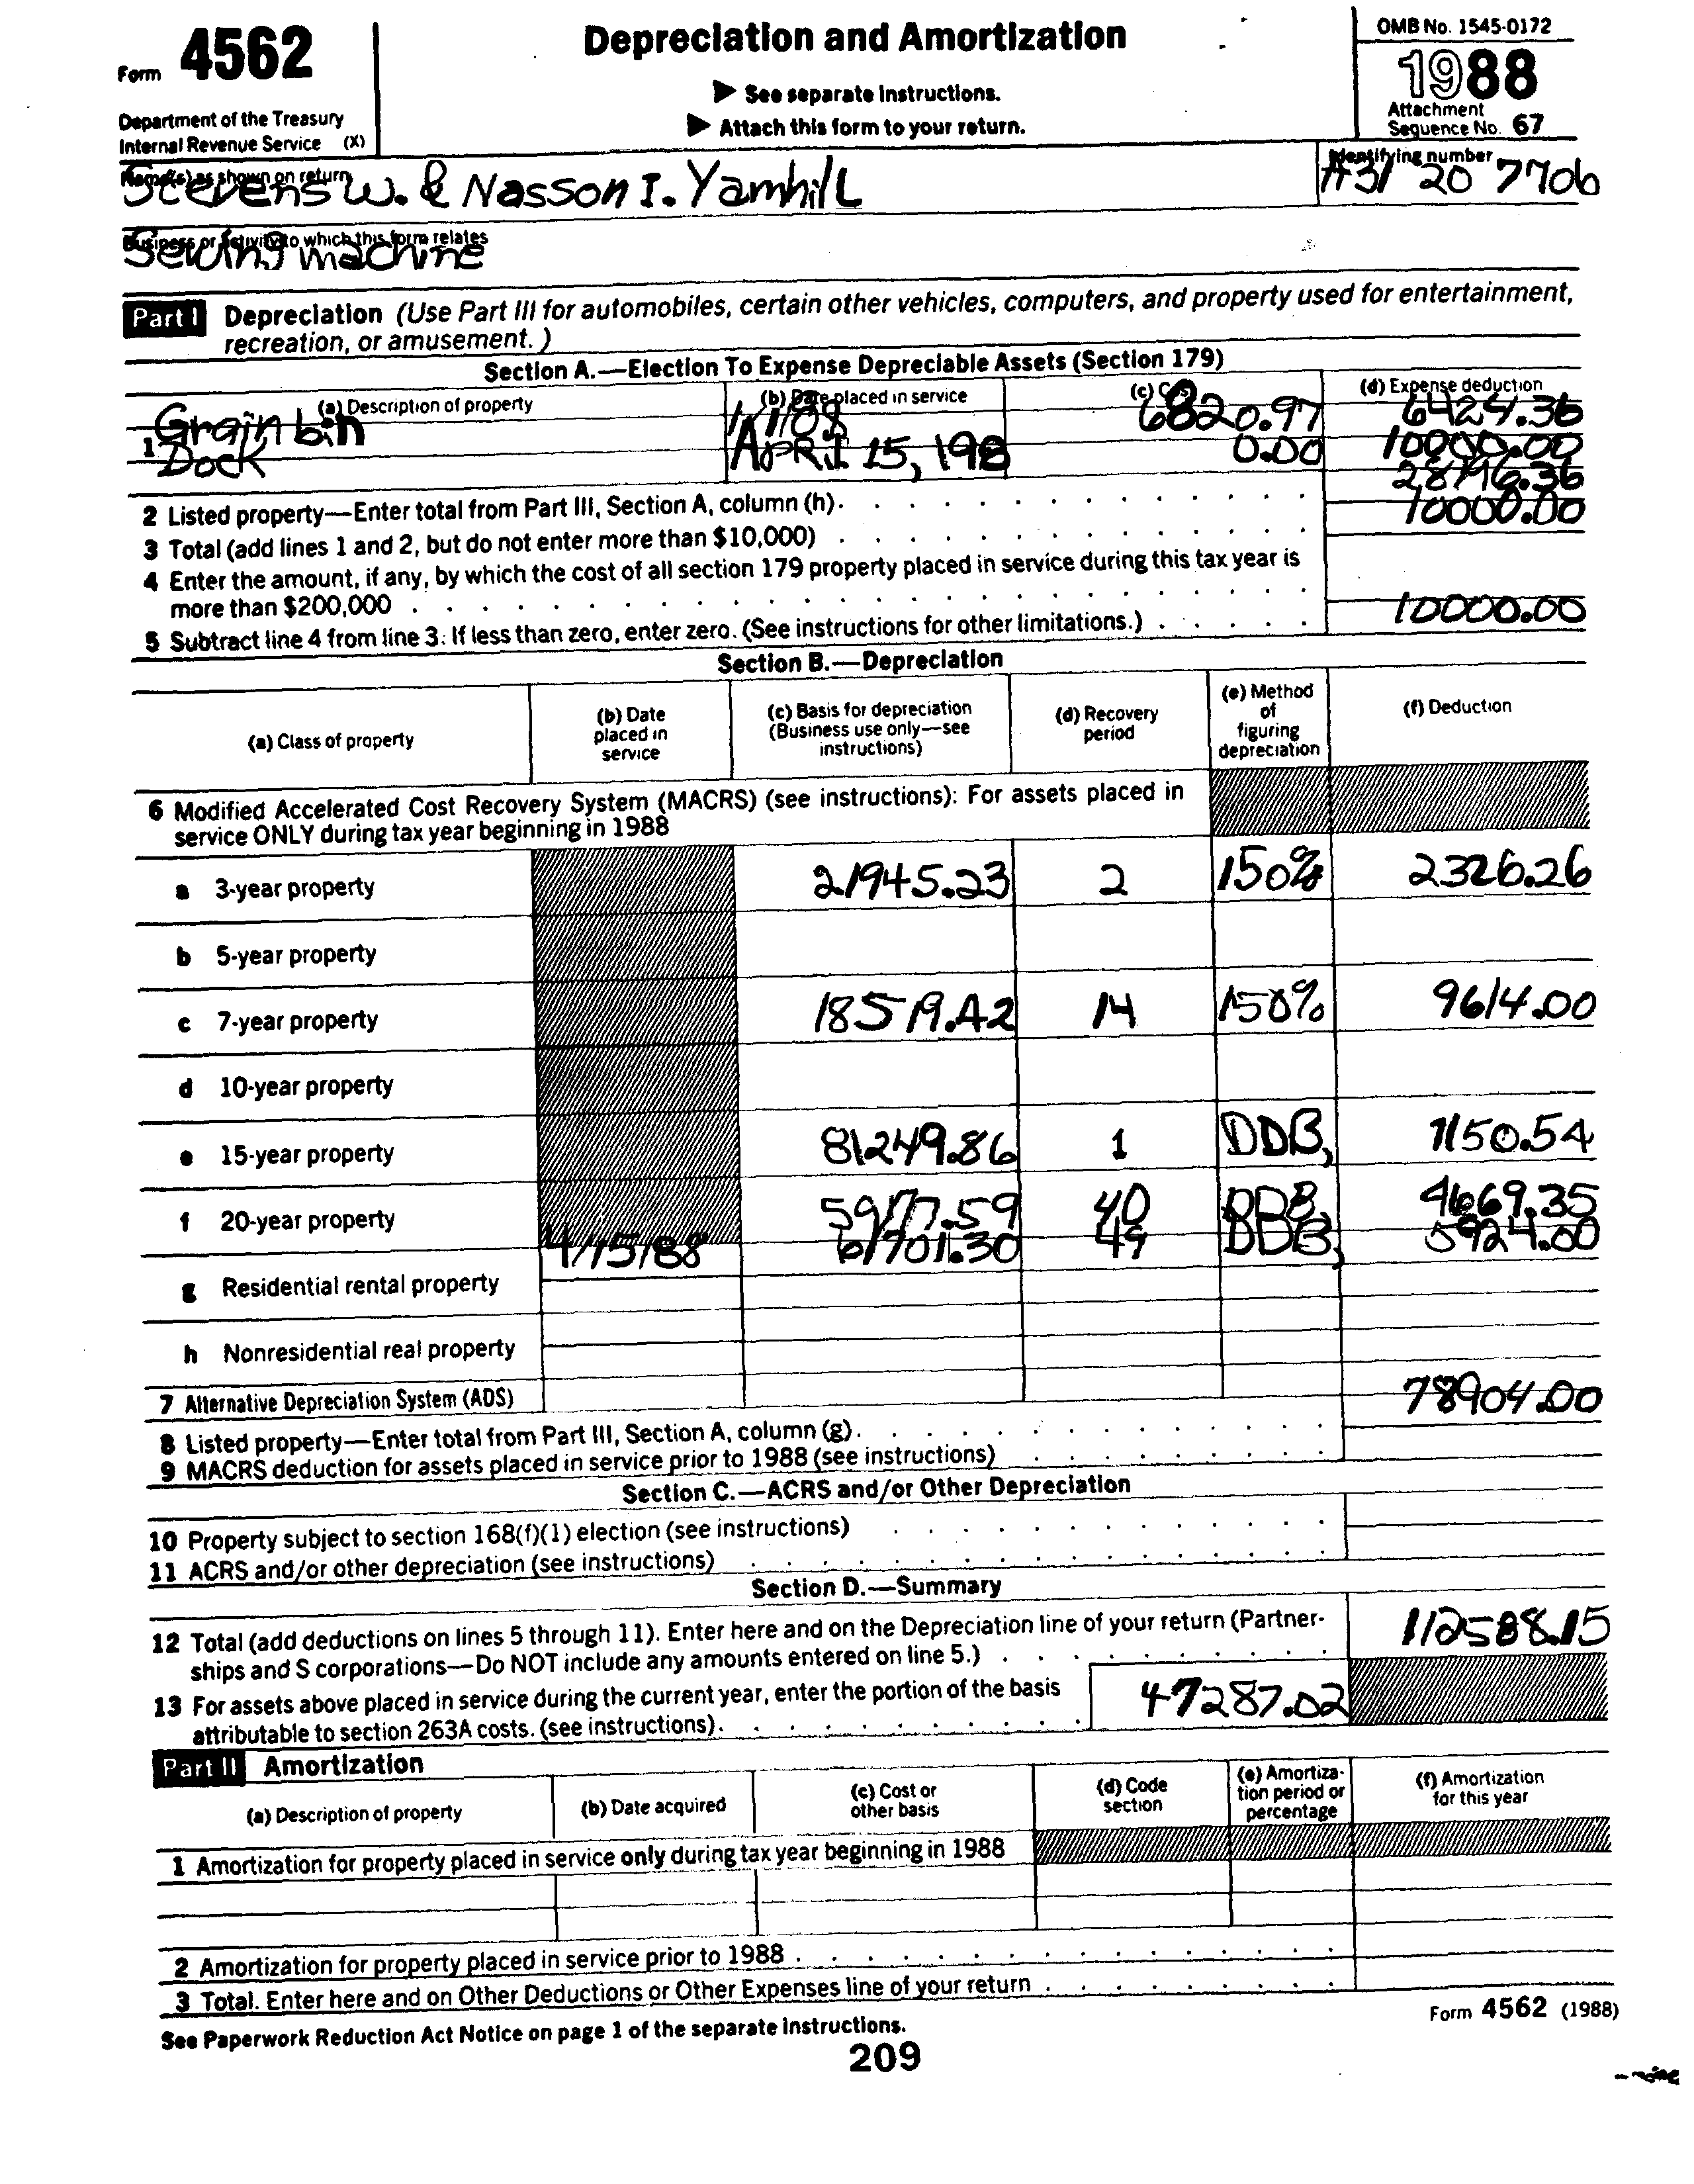 Form 4562
Department of the Treasury
Internal Revenue Service (X)
Depreciation and Amortization
▶ See separate instructions.
▶ Attach this form to your return.
OMB No. 1545-0172
1988
Attachment
Sequence No. 67
Name(s) as shown on return
Stevens W. & Nasson I. Yamhill
Identifying number
31 20 7706
Business or activity to which this form relates
Sewing machine
Part I Depreciation (Use Part III for automobiles, certain other vehicles, computers, and property used for entertainment,
recreation, or amusement.)
Section A.—Election To Expense Depreciable Assets (Section 179)
(a) Description of property (b) Date placed in service (c) Cost (d) Expense deduction
Grain bin 1/1/88 6820.97 6424.36
1 Dock APRIL 15, 198 0.00 10000.00
28196.36
2 Listed property—Enter total from Part III, Section A, column (h). 10000.00
3 Total (add lines 1 and 2, but do not enter more than $10,000)
4 Enter the amount, if any, by which the cost of all section 179 property placed in service during this tax year is
more than $200,000 10000.00
5 Subtract line 4 from line 3. If less than zero, enter zero. (See instructions for other limitations.)
Section B.—Depreciation
(a) Class of property (b) Date placed in service (c) Basis for depreciation (Business use only—see instructions) (d) Recovery period (e) Method of figuring depreciation (f) Deduction
6 Modified Accelerated Cost Recovery System (MACRS) (see instructions): For assets placed in
service ONLY during tax year beginning in 1988
a 3-year property 21945.23 2 150% 2326.26
b 5-year property
c 7-year property 18519.42 14 150% 9614.00
d 10-year property
e 15-year property 81249.86 1 DDB, 1150.54
f 20-year property 59177.59 40 DDB, 4669.35
4/15/88 61701.30 49 DDB, 5924.00
g Residential rental property
h Nonresidential real property
7 Alternative Depreciation System (ADS) 78904.00
8 Listed property—Enter total from Part III, Section A, column (g).
9 MACRS deduction for assets placed in service prior to 1988 (see instructions)
Section C.—ACRS and/or Other Depreciation
10 Property subject to section 168(f)(1) election (see instructions)
11 ACRS and/or other depreciation (see instructions)
Section D.—Summary
12 Total (add deductions on lines 5 through 11). Enter here and on the Depreciation line of your return (Partner-
ships and S corporations—Do NOT include any amounts entered on line 5.) 112588.15
13 For assets above placed in service during the current year, enter the portion of the basis
attributable to section 263A costs. (see instructions). 47287.02
Part II Amortization
(a) Description of property (b) Date acquired (c) Cost or other basis (d) Code section (e) Amortiza-tion period or percentage (f) Amortization for this year
1 Amortization for property placed in service only during tax year beginning in 1988
2 Amortization for property placed in service prior to 1988
3 Total. Enter here and on Other Deductions or Other Expenses line of your return
See Paperwork Reduction Act Notice on page 1 of the separate instructions.
Form 4562 (1988)
209